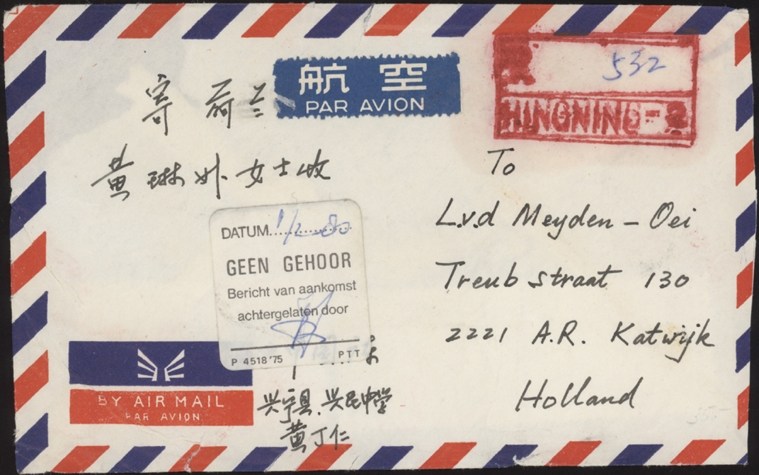 航空
PAR AVION
532
HINGNING
寄 荷兰
黄琳外女士收
To
L.v.d Meyden - Oei
Treub straat 130
2221 A.R. Katwijk
Holland
DATUM.....1/2-80
GEEN GEHOOR
Bericht van aankomst
achtergelaten door
P 4518'75 PTT
BY AIR MAIL
PAR AVION
兴宁县,兴民中学
黄丁仁